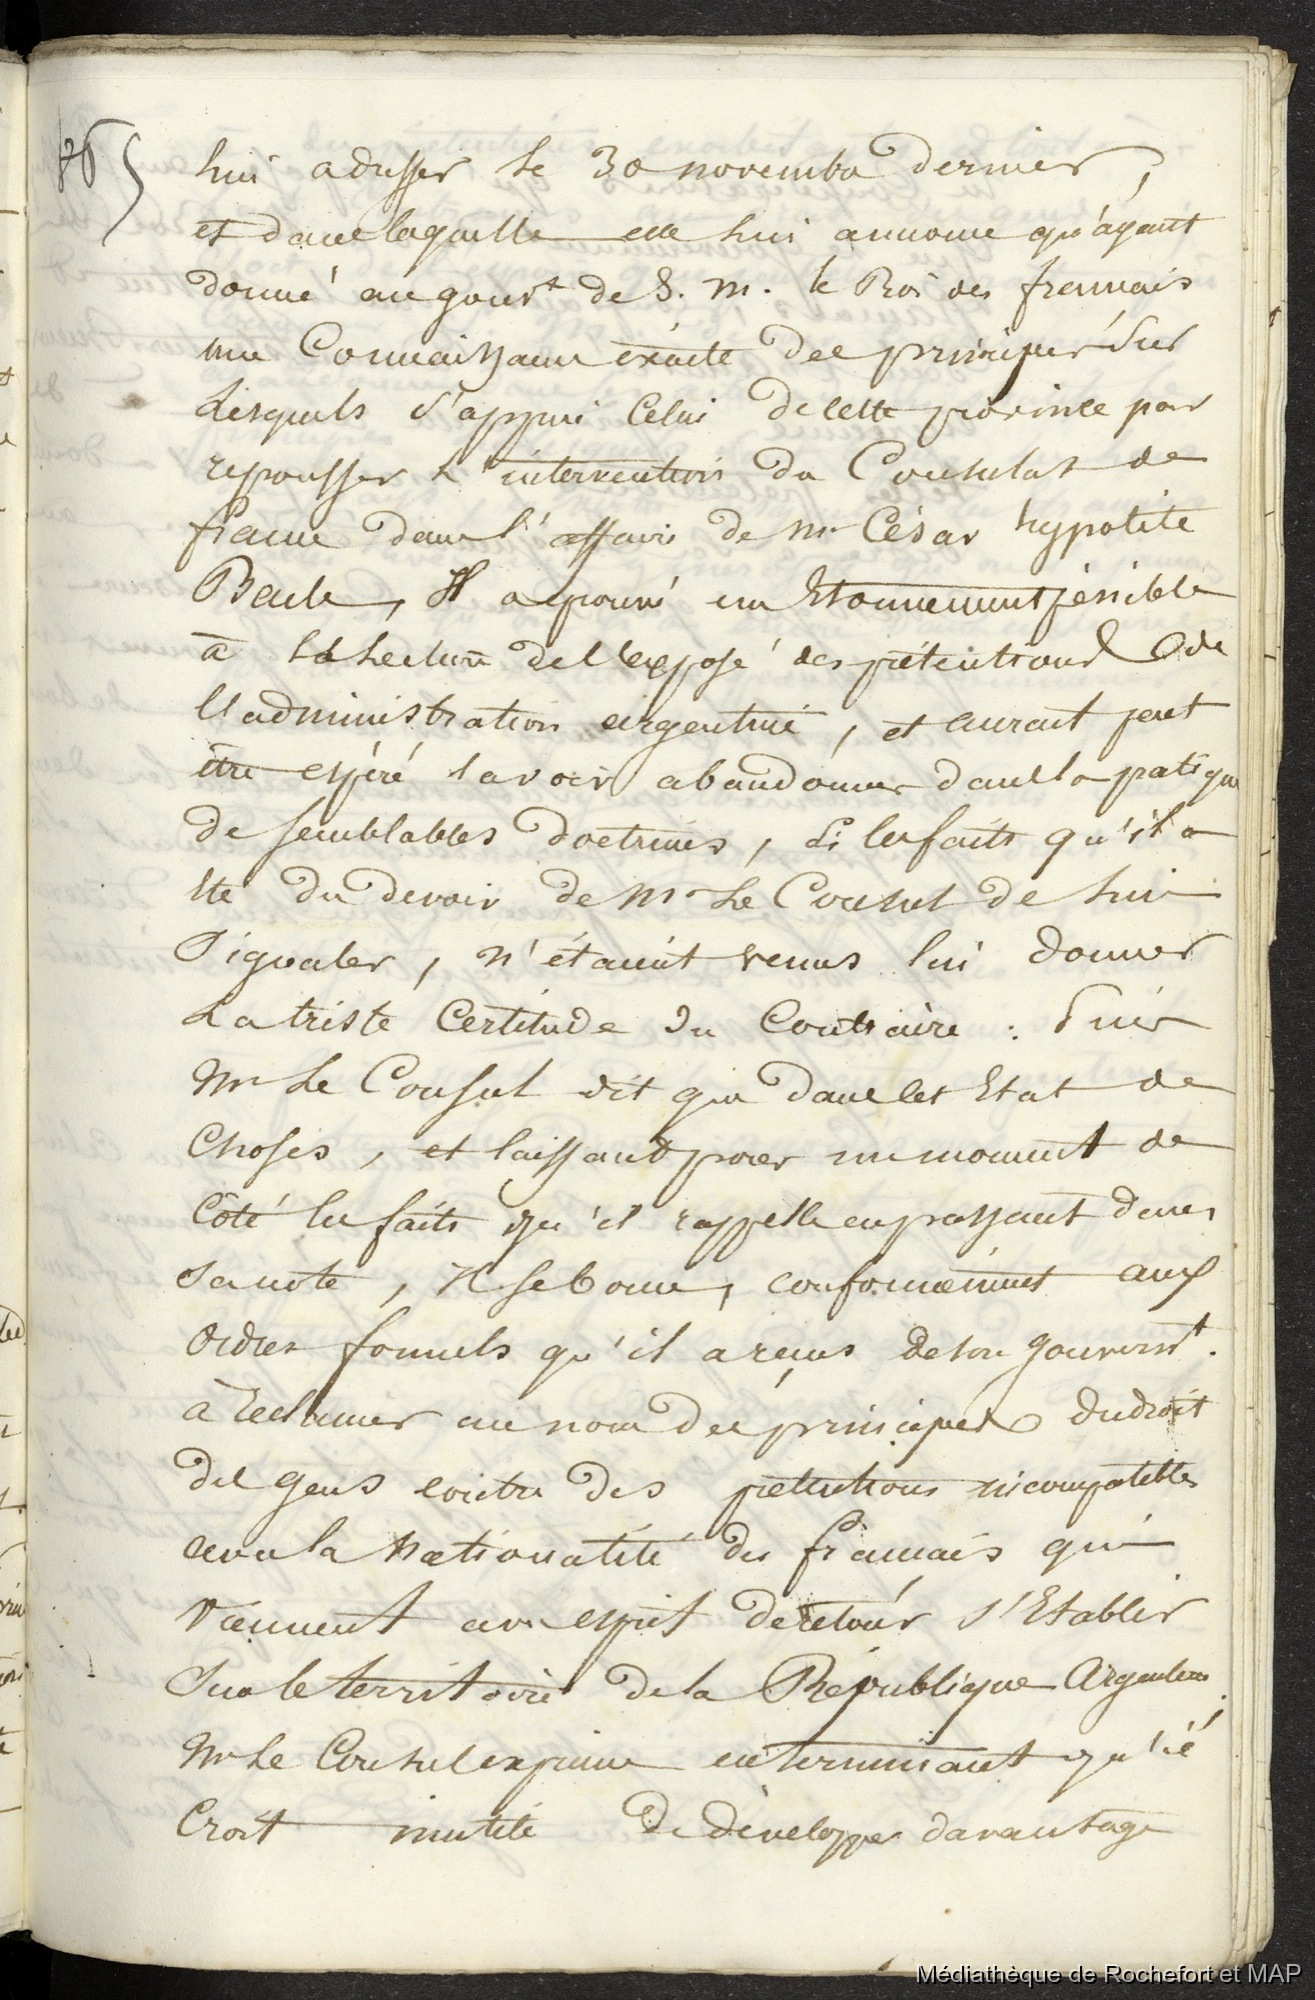 86
lui adresser le 30 novembre dernier,
et dans laquelle elle lui annonce qu'ayant
donné au gouvt de S. M. le Roi des français
une Connaissance éxacte des principes sur
Lesquels s'appui Celui de cette province pour
repousser L'intervention du Consulat de
france dans l'affaire de Mr César hypolite
Bacle, Il a éprouvé un Etonnement pénible
à la Lecture de l'exposé des prétentions de
l'administration argentine, et aurait peut
être espéré la voir abandonner dans la pratique
de semblables doctrines, si les faits qu'il a
été du devoir de Mr Le Consul de lui
Signaler, n'étaient venus lui donner
La triste Certitude du Contraire : Puis
Mr Le Consul dit que dans cet Etat de
Choses, et laissant pour un moment de
Côté les faits qu'il rappelle en passant dans
sa note, Il se borne, conformément aux
Ordres formels qu'il a reçus de son gouvernt.
à reclamer au nom des principes du droit
des gens contre des prétentions incompatibles
avec la nationalité des français qui
viennent avec esprit de retour s'Etablir
Sur le territoire de la République Argentine.
Mr Le Consul exprime en terminant qu'il
Croit inutile de développer davantage
Médiathèque de Rochefort et MAP